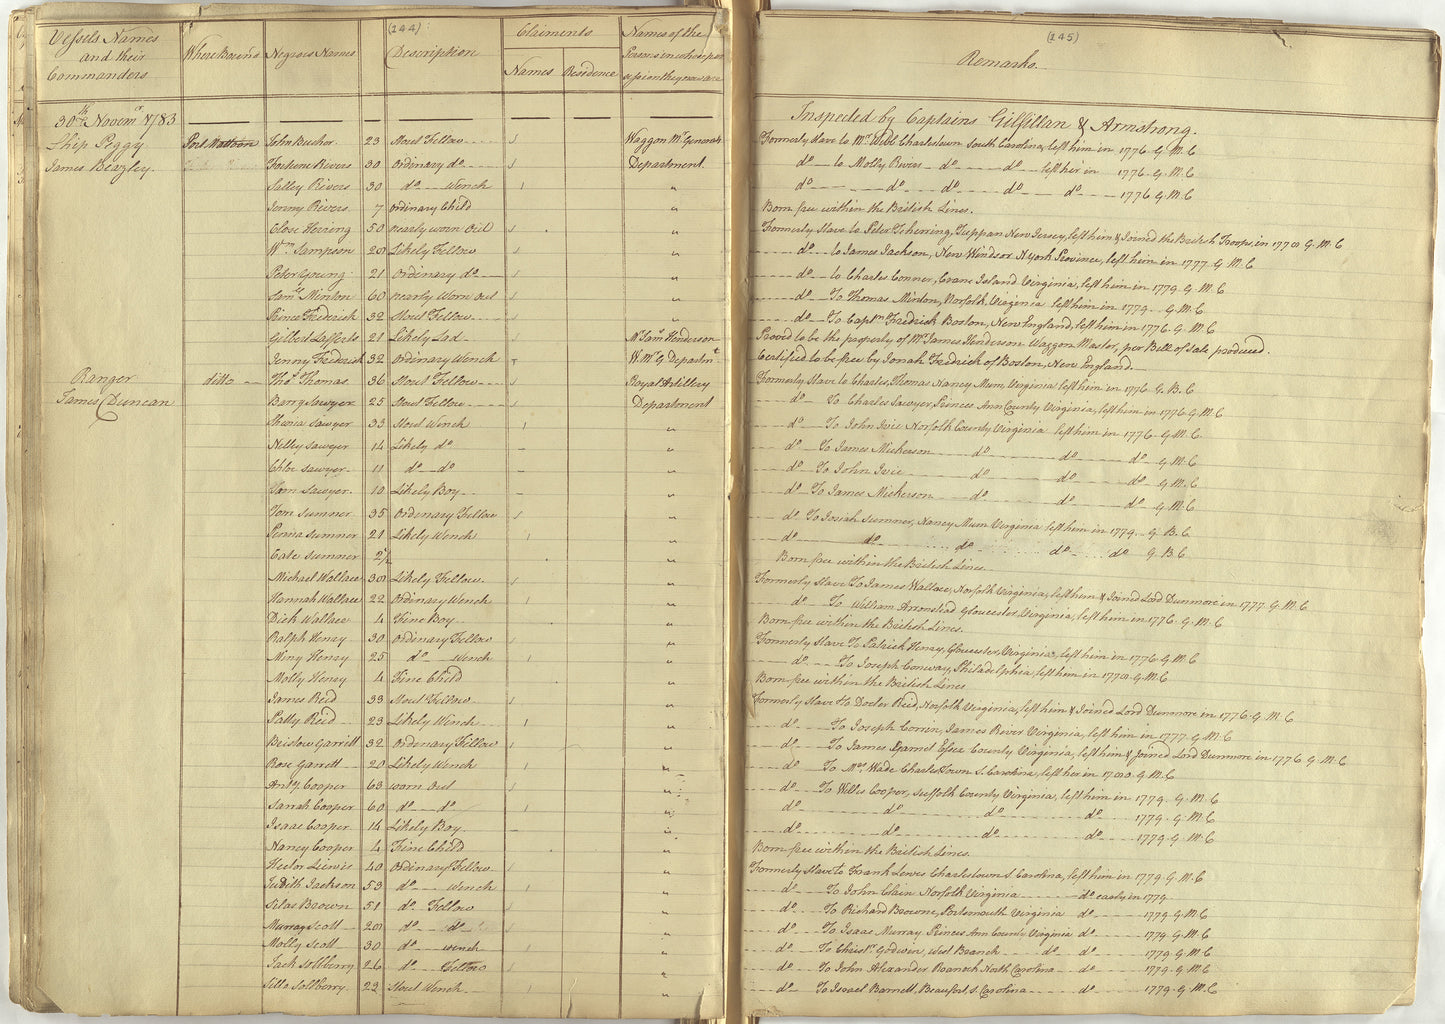 (144)
Vessels Names and their Commanders
Where Bound
Negroes Names
Description
Claiments
Names
Residence
Names of the Persons in whose possession they now are
30th Novemr 1783
Ship Peggy
James Beazley.
Port Mattoon
John Bushor 23 Stout Fellow Waggon Mr Generals
Fortune Rivers 30 Ordinary do Department
Salley Rivers 30 do Wench "
Jenny Rivers 7 ordinary Child "
Close Herring 50 nearly worn Out "
Wm Sampson 20 Likely Fellow "
Peter Young 21 Ordinary do "
Saml Minton 60 nearly Worn out "
Prince Frederick 32 Stout Fellow "
Gilbert Lafferts 21 Likely Lad Mr Jas Henderson
Jenny Frederick 32 Ordinary Wench W. M. G. Departmt
Ranger ditto Thos Thomas 36 Stout Fellow Royal Artillery
James Duncan Barry Sawyer 25 Stout Fellow Department
Sawyer 33 Stout Wench "
Nelly Sawyer 14 Likely do "
Chloe Sawyer 11 do do "
Tom Sawyer 10 Likely Boy "
Tom Sumner 35 Ordinary Fellow "
Penna Sumner 21 Likely Wench "
Cate Sumner 2 1/2 "
Michael Wallace 30 Likely Fellow "
Hannah Wallace 22 Ordinary Wench "
Dick Wallace 4 Fine Boy "
Ralph Henry 30 ordinary Fellow "
Miny Henry 25 do Wench "
Molly Henry 4 Fine Child "
James Reid 33 Stout Fellow "
Patty Reid 23 Likely Wench "
Bristow Garrett 32 Ordinary Fellow "
Rose Garrett 20 Likely Wench "
Anty Cooper 63 worn Out "
Sarah Cooper 60 do do "
Isaac Cooper 14 Likely Boy "
Nancy Cooper 4 Fine Child "
Hector Lewis 40 Ordinary Fellow "
Judith Jackson 53 do Wench "
Silas Brown 51 do Fellow "
Murray Scott 20 do do "
Molly Scott 30 do wench "
Jack Sollberry 26 do Fellow "
Sitto Sollberry 23 Stout Wench "
(145)
Remarks
Inspected by Captains Gilfillan & Armstrong.
Formerly Slave to Mr Webb Charlestown South Carolina, left him in 1776. G. M. C
do to Molly Rivers do do left her in 1776. G. M. C
do do do do do 1776 G. M. C
Born free within the British Lines.
Formerly Slave to Peter Herring, Tappan New Jersey, left him & Joined the British Troops, in 1780 G. M. C
do to James Jackson, New Windsor N. York Province, left him in 1777. G. M. C
do to Charles Conner, Crane Island Virginia, left him in 1779. G. M. C
do To Thomas Minton, Norfolk, Virginia left him in 1779. G. M. C
do To Captn Fredrick Boston, New England, left him in 1776. G. M. C
Proved to be the property of Mr James Henderson Waggon Master, per Bill of Sale produced.
Certified to be free by Jonah Fredrick of Boston, New England.
Formerly Slave to Charles Thomas Nancy Mum Virginia left him in 1776. G. B. C
do To Charles Sawyer, Princes Ann County Virginia, left him in 1776 G. M. C
do To John Ivie Norfolk County Virginia left him in 1776. G. M. C
do To James Mickerson do do do G. M. C
do To John Ivie do do do G. M. C
do To James Mickerson do do do G. M. C
do To Josiah Sumner, Nancy Mum Virginia left him in 1779. G. B. C
do do do do do G. B. C
Born free within the British Lines.
Formerly Slave To James Wallace, Norfolk Virginia, left him & Joined Lord Dunmore in 1777. G. M. C
do To William Armstead Gloucester Virginia, left him in 1776. G. M. C
Born free within the British Lines.
Formerly Slave To Patrick Henry, Gloucester, Virginia, left him in 1776. G. M. C
do To Joseph Conway, Philadelphia, left him in 1778 G. M. C
Born free within the British Lines
Formerly Slave to Doctor Reid, Norfolk Virginia, left him & Joined Lord Dunmore in 1776. G. M. C
do To Joseph Corrin, James River Virginia, left him in 1777. G. M. C
do To James Garnet Essex County Virginia, left him & Joined Lord Dunmore in 1776. G. M. C
do To Mrs Wade Charles Town S. Carolina, left her in 1780. G. M. C
do To Willis Cooper, Suffolk County Virginia, left him in 1779. G. M. C
do do do do 1779. G. M. C
do do do do 1779 G. M. C
Born free within the British Lines.
Formerly Slave to Frank Lewis Charlestown S. Carolina, left him in 1779. G. M. C
do To John Clain Norfolk Virginia do early in 1779
do To Richard Browne, Portsmouth Virginia do 1779 G. M. C
do To Isaac Murray Princes Ann County Virginia do 1779. G. M. C
do To Christr Godwin, West Branch do do 1779 G. M. C
do To John Alexander Roanoch North Carolina do 1779. G. M. C
do To Israel Barnett, Beaufort, S. Carolina do 1779. G. M. C